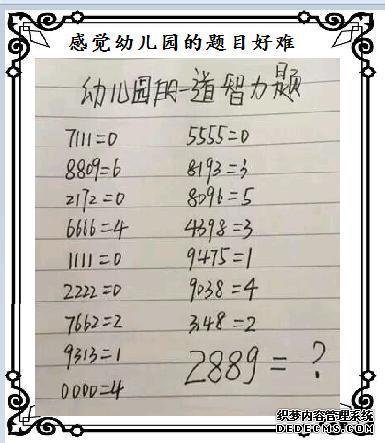 感觉幼儿园的题目好难
幼儿园段一道智力题
7111=0 5555=0
8809=6 8193=3
2172=0 8096=5
6666=4 4398=3
1111=0 9475=1
2222=0 9038=4
7662=2 3148=2
9313=1 2889=?
0000=4
织梦内容管理系统
DEDECMS.COM